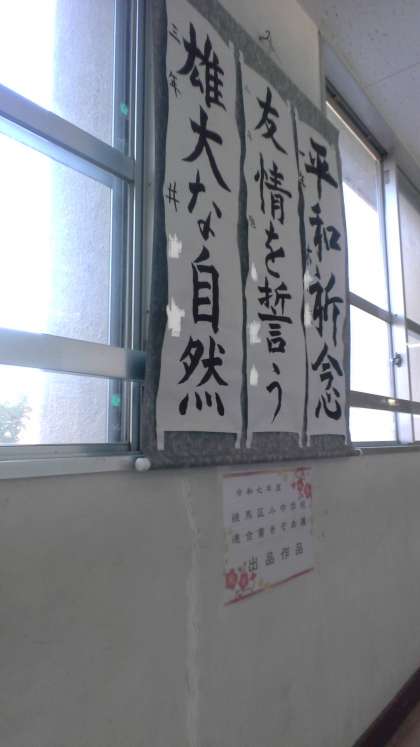 平和祈念
友情を誓う
雄大な自然
三年
井
令和七年度
練馬区小中学校
連合書きぞめ展
出品作品